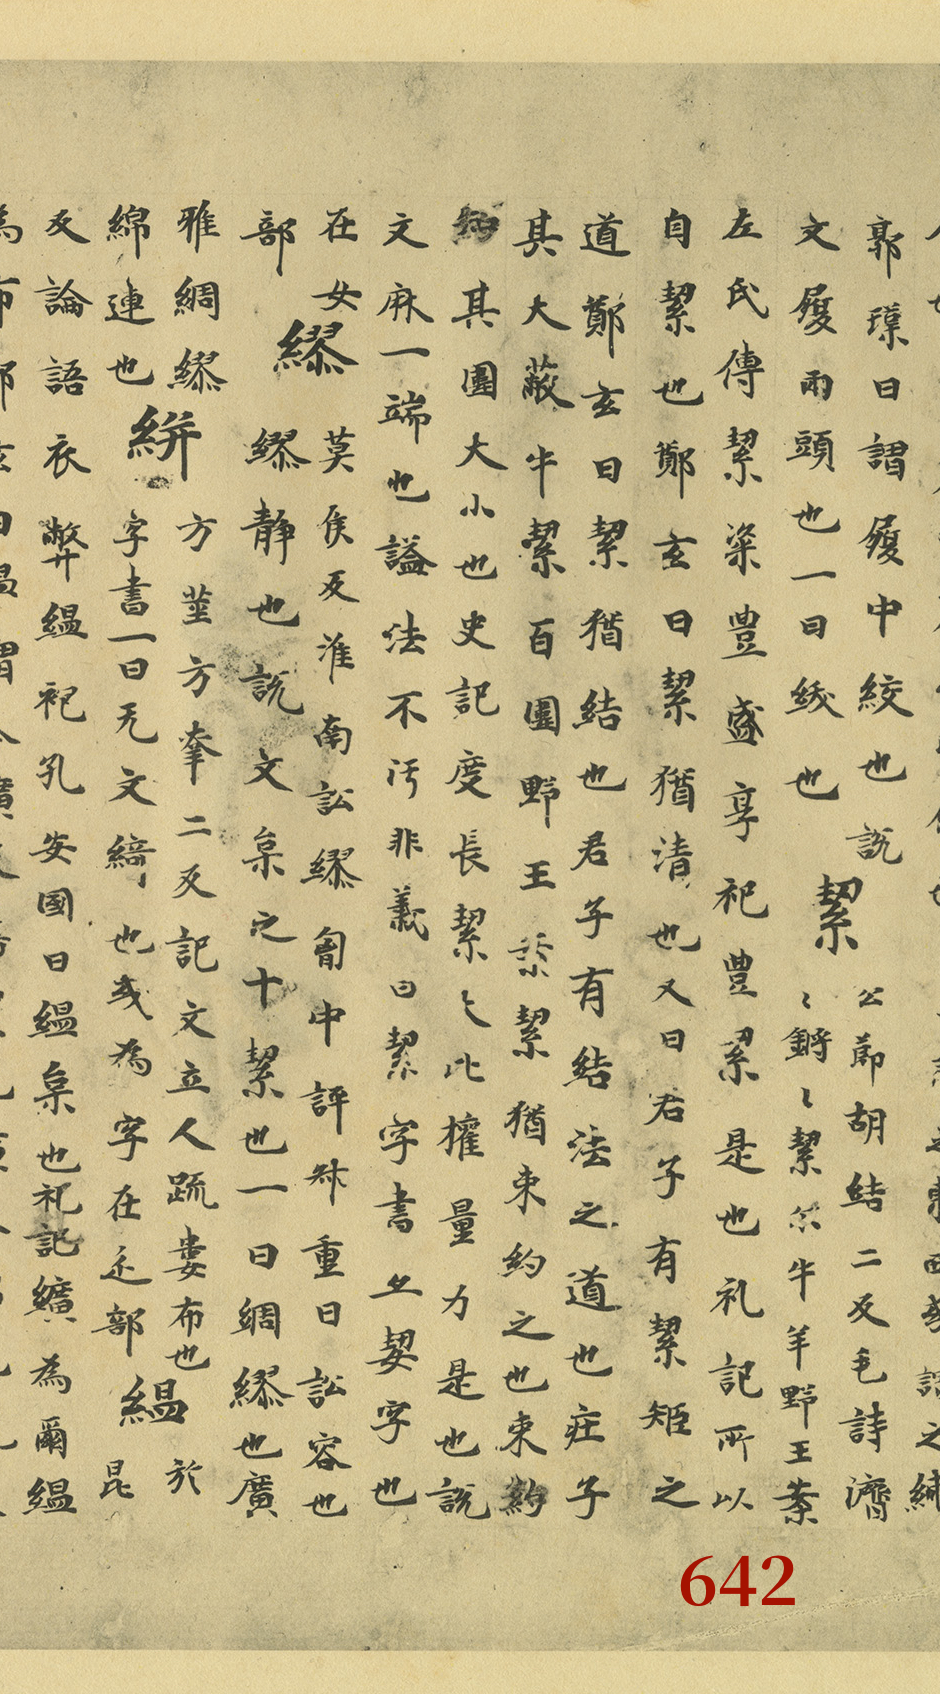 郭璞曰謂履中絞也說
文履兩頭也一曰緎也 絜 公節胡結二反毛詩濟
〻鏘〻絜尒牛羊野王案
左氏傳絜粢豊盛享祀豊絜是也礼記所以
自絜也鄭玄曰絜猶清也又曰君子有絜矩之
道鄭玄曰絜猶結也君子有結法之道也庄子
其大蔽牛絜百圍野王案絜猶束約之也束約
知其圍大小也史記度長絜〻比權量力是也說
文麻一端也謚法不汚非義曰絜字書亦㛃字也
在女部 繆 莫侯反淮南訟繆匈中評叔重曰訟容也
繆静也說文枲之十絜也一曰綢繆也廣
雅綢繆綿連也 絣 方莖方幸二反記文立人疏婁布也
字書一曰无文綺也或為字在辵部 緼 於昆
反論語衣弊緼袍孔安國曰緼枲也礼記纊為爾緼